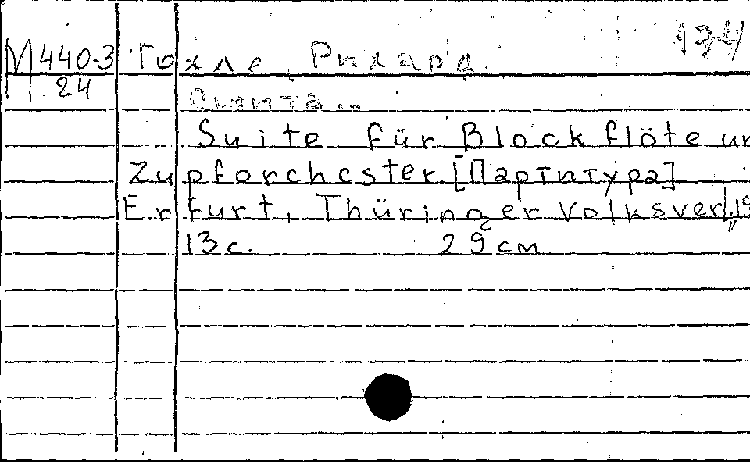 134
М 440-3 Гохле, Рихард.
24
Сюита...
Suite für Blockflöte un
Zupforchester. [Партитура]
Erfurt, Thüringer Volksverl., 19
13 с. 29 см